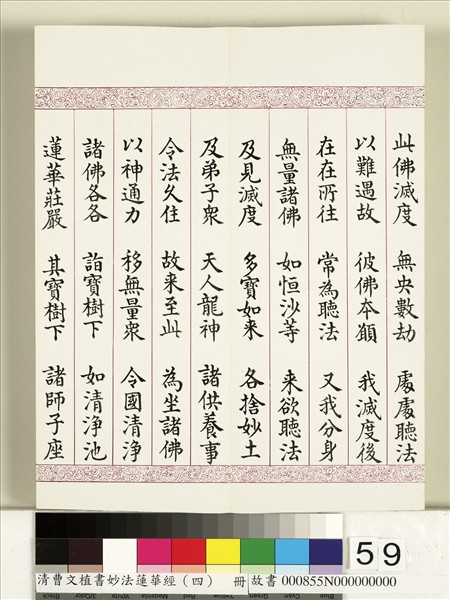 此佛滅度 無央數劫 處處聽法
以難遇故 彼佛本願 我滅度後
在在所往 常為聽法 又我分身
無量諸佛 如恒沙等 来欲聽法
及見滅度 多寶如来 各捨妙土
及弟子眾 天人龍神 諸供養事
令法久住 故来至此 為坐諸佛
以神通力 移無量眾 令國清淨
諸佛各各 詣寶樹下 如清淨池
蓮華莊嚴 其寶樹下 諸師子座
59
清曹文植書妙法蓮華經(四) 冊 故書 000855N000000000
Black 3/Color White Magenta